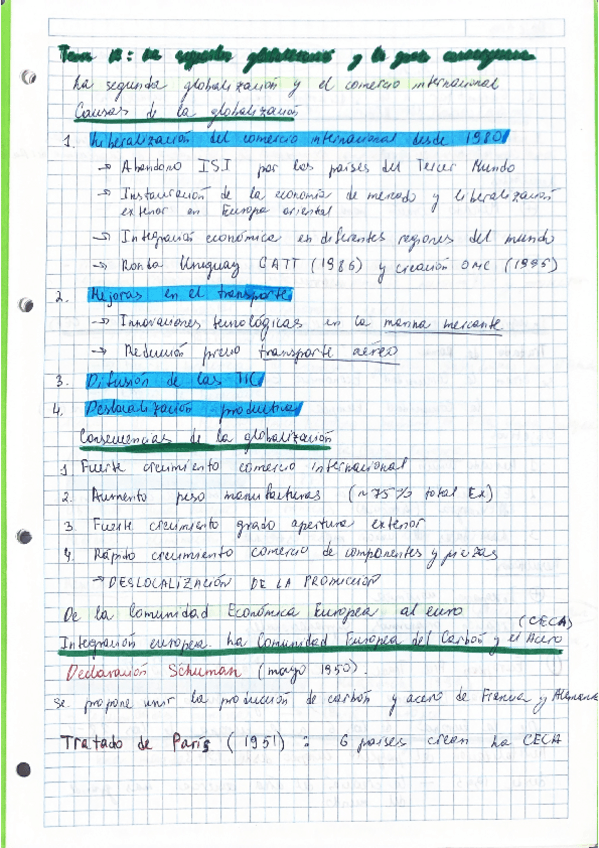 Tema 12: La segunda globalización y la gran
La segunda globalización y el comercio internacional
Causas de la globalización
1. Liberalización del comercio internacional desde 1980
→ Abandono ISI por los países del Tercer Mundo
→ Instauración de la economía de mercado y liberalización
exterior en Europa oriental
→ Integración económica en diferentes regiones del mundo
→ Ronda Uruguay GATT (1986) y creación OMC (1995)
2. Mejoras en el transporte
→ Innovaciones tecnológicas en la marina mercante
→ Reducción precio transporte aéreo
3. Difusión de las TIC
4. Deslocalización productiva
Consecuencias de la globalización
1 Fuerte crecimiento comercio internacional
2. Aumento peso manufacturas (~75% total Ex)
3 Fuerte crecimiento grado apertura exterior
4. Rápido crecimiento comercio de componentes y piezas
→ DESLOCALIZACIÓN DE LA PRODUCCIÓN
De la Comunidad Económica Europea al euro
Integración europea La Comunidad Europea del Carbón y el Acero (CECA)
Declaración Schuman (mayo 1950).
se propone unir la producción de carbón y acero de Francia y Alemania
Tratado de París (1951): 6 países crean la CECA